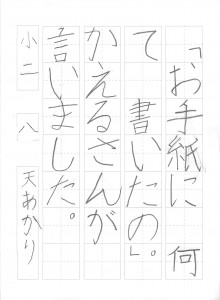 「お手紙に 何
て 書いたの」。
かえるさんが
言いました。
小二 八 天あかり